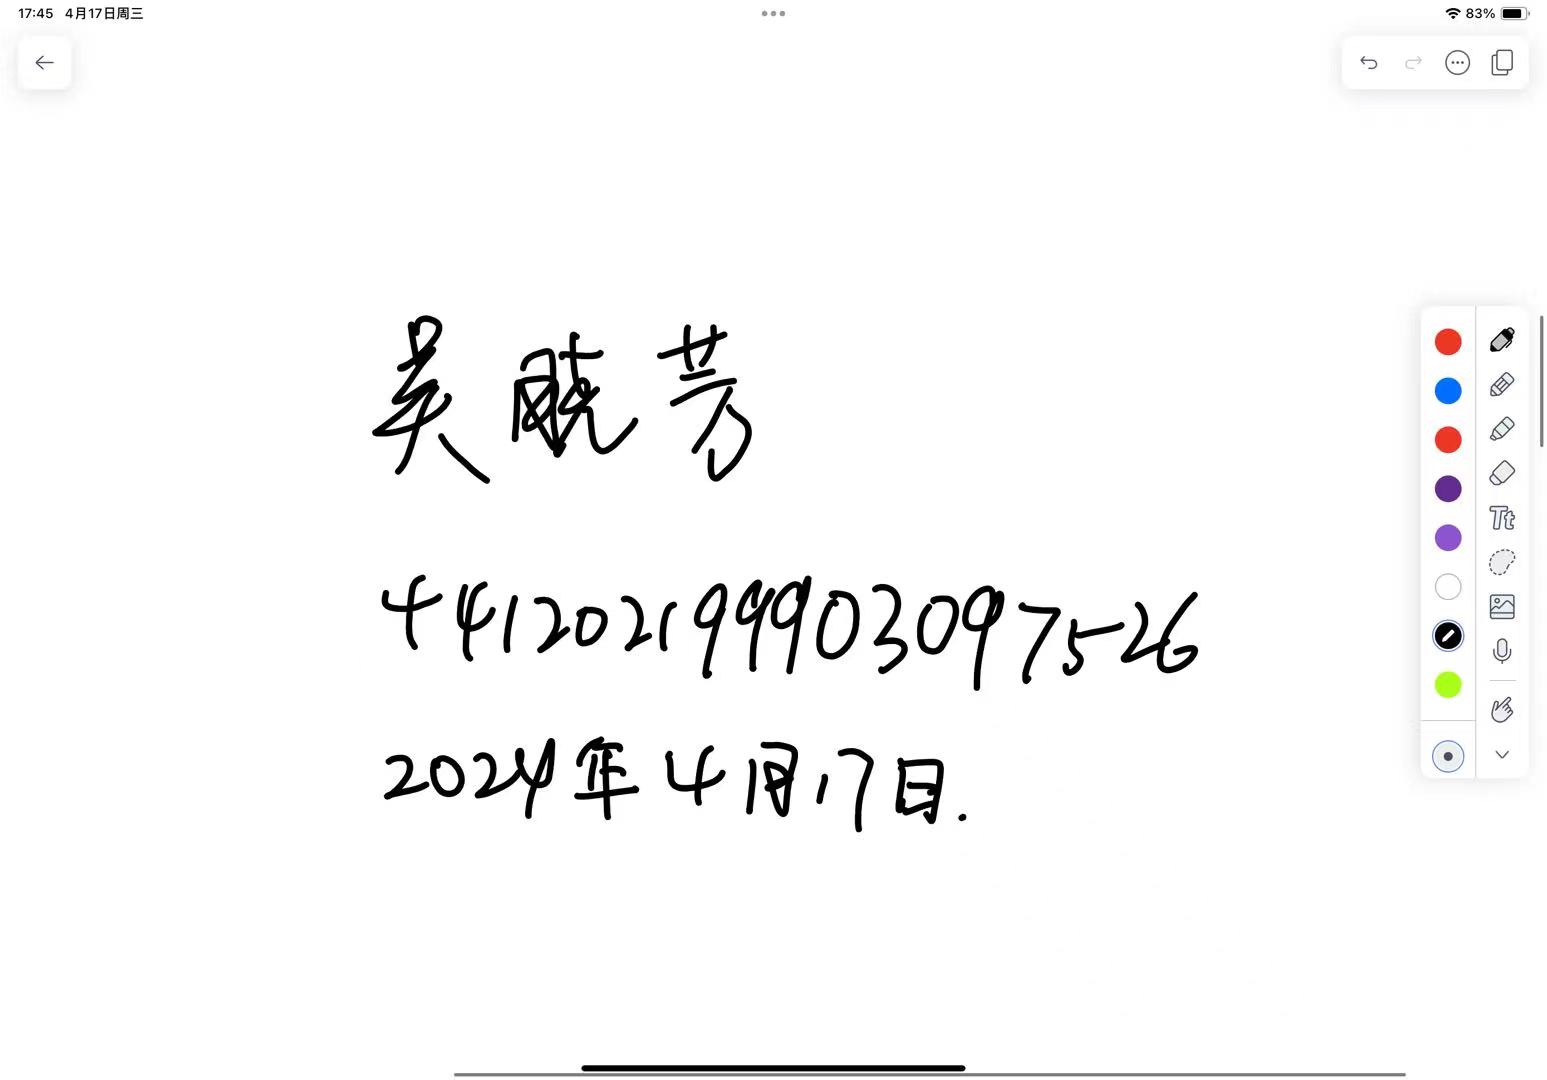 17:45 4月17日周三 83%
吴晓芳
441202199903097526
2024年4月17日.
Tt